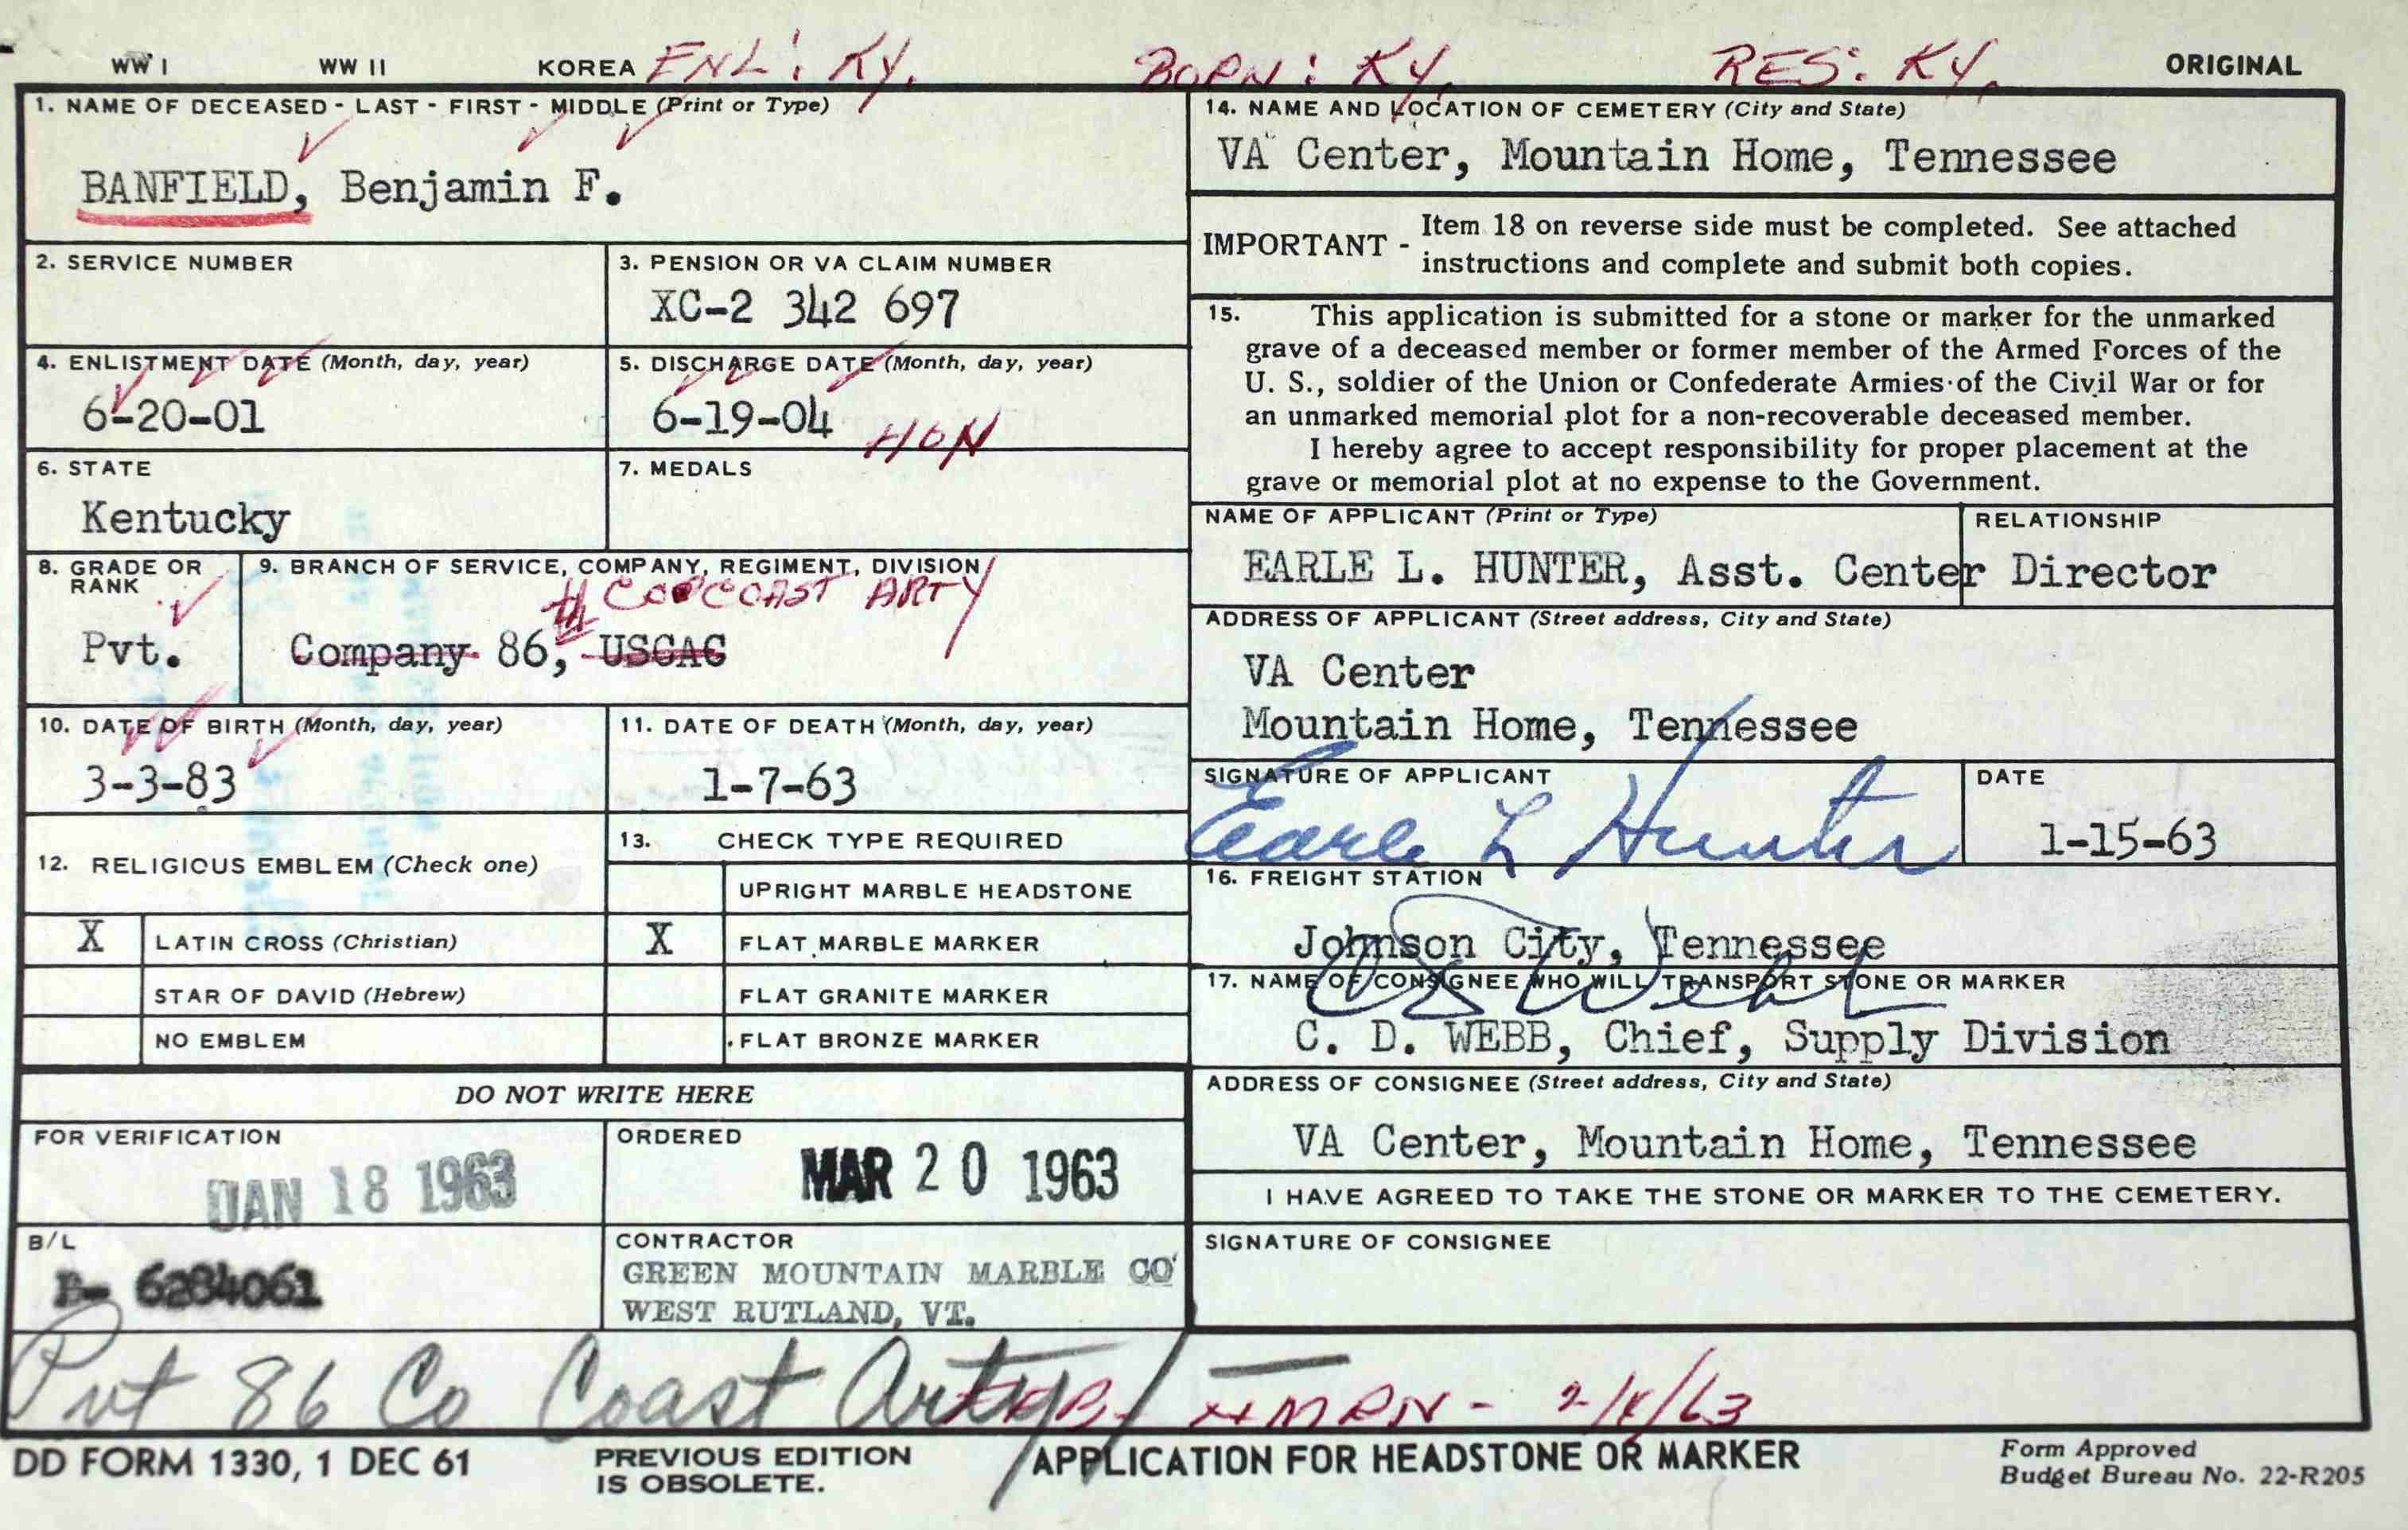 WW I WW II KOREA ENL: KY. BORN: KY. RES: KY. ORIGINAL
1. NAME OF DECEASED - LAST - FIRST - MIDDLE (Print or Type)
BANFIELD, Benjamin F.
2. SERVICE NUMBER
3. PENSION OR VA CLAIM NUMBER
XC-2 342 697
4. ENLISTMENT DATE (Month, day, year)
6-20-01
5. DISCHARGE DATE (Month, day, year)
6-19-04 HON
6. STATE
Kentucky
7. MEDALS
8. GRADE OR
RANK
Pvt.
9. BRANCH OF SERVICE, COMPANY, REGIMENT, DIVISION
CO COAST ARTY
Company 86, USCAC
10. DATE OF BIRTH (Month, day, year)
3-3-83
11. DATE OF DEATH (Month, day, year)
1-7-63
12. RELIGIOUS EMBLEM (Check one)
X LATIN CROSS (Christian)
STAR OF DAVID (Hebrew)
NO EMBLEM
13. CHECK TYPE REQUIRED
UPRIGHT MARBLE HEADSTONE
X FLAT MARBLE MARKER
FLAT GRANITE MARKER
FLAT BRONZE MARKER
DO NOT WRITE HERE
FOR VERIFICATION
JAN 18 1963
ORDERED
MAR 20 1963
B/L
B- 6284061
CONTRACTOR
GREEN MOUNTAIN MARBLE CO
WEST RUTLAND, VT.
14. NAME AND LOCATION OF CEMETERY (City and State)
VA Center, Mountain Home, Tennessee
IMPORTANT - Item 18 on reverse side must be completed. See attached
instructions and complete and submit both copies.
15. This application is submitted for a stone or marker for the unmarked
grave of a deceased member or former member of the Armed Forces of the
U. S., soldier of the Union or Confederate Armies of the Civil War or for
an unmarked memorial plot for a non-recoverable deceased member.
I hereby agree to accept responsibility for proper placement at the
grave or memorial plot at no expense to the Government.
NAME OF APPLICANT (Print or Type) RELATIONSHIP
EARLE L. HUNTER, Asst. Center Director
ADDRESS OF APPLICANT (Street address, City and State)
VA Center
Mountain Home, Tennessee
SIGNATURE OF APPLICANT
Earle L Hunter
DATE
1-15-63
16. FREIGHT STATION
Johnson City, Tennessee
17. NAME OF CONSIGNEE WHO WILL TRANSPORT STONE OR MARKER
C. D. WEBB, Chief, Supply Division
ADDRESS OF CONSIGNEE (Street address, City and State)
VA Center, Mountain Home, Tennessee
I HAVE AGREED TO TAKE THE STONE OR MARKER TO THE CEMETERY.
SIGNATURE OF CONSIGNEE
Pvt 86 Co Coast Arty
DD FORM 1330, 1 DEC 61
PREVIOUS EDITION
IS OBSOLETE.
APPLICATION FOR HEADSTONE OR MARKER
Form Approved
Budget Bureau No. 22-R205